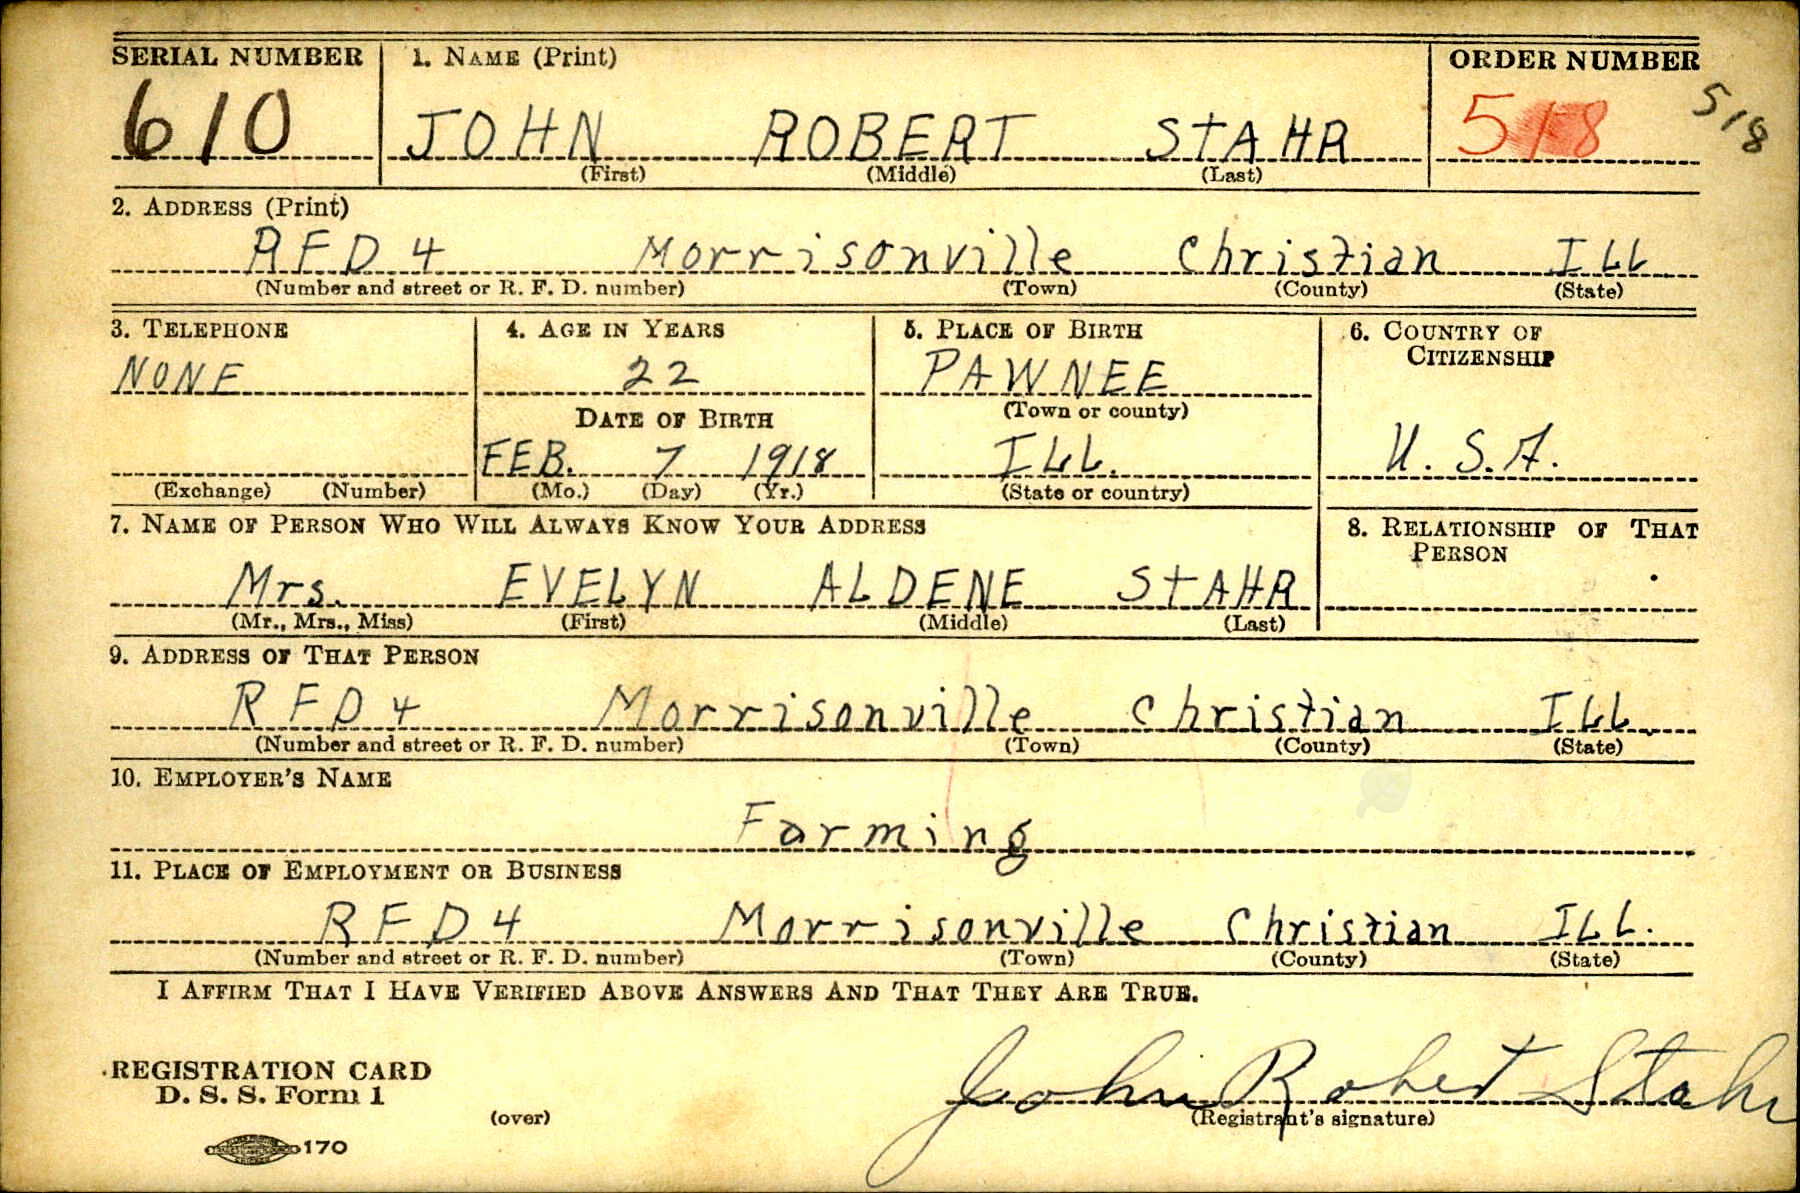 SERIAL NUMBER 1. NAME (Print) ORDER NUMBER
610 JOHN ROBERT STAHR 518 518
(First) (Middle) (Last)
2. ADDRESS (Print)
RFD 4 Morrisonville Christian ILL
(Number and street or R. F. D. number) (Town) (County) (State)
3. TELEPHONE 4. AGE IN YEARS 5. PLACE OF BIRTH 6. COUNTRY OF
CITIZENSHIP
NONE 22 PAWNEE
DATE OF BIRTH (Town or county)
FEB. 7 1918 ILL. U. S. A.
(Exchange) (Number) (Mo.) (Day) (Yr.) (State or country)
7. NAME OF PERSON WHO WILL ALWAYS KNOW YOUR ADDRESS 8. RELATIONSHIP OF THAT
PERSON
Mrs. EVELYN ALDENE STAHR
(Mr., Mrs., Miss) (First) (Middle) (Last)
9. ADDRESS OF THAT PERSON
RFD 4 Morrisonville Christian ILL.
(Number and street or R. F. D. number) (Town) (County) (State)
10. EMPLOYER'S NAME
Farming
11. PLACE OF EMPLOYMENT OR BUSINESS
RFD 4 Morrisonville Christian ILL.
(Number and street or R. F. D. number) (Town) (County) (State)
I AFFIRM THAT I HAVE VERIFIED ABOVE ANSWERS AND THAT THEY ARE TRUE.
REGISTRATION CARD
D. S. S. Form 1 John Robert Stahr
(over) (Registrant's signature)
170